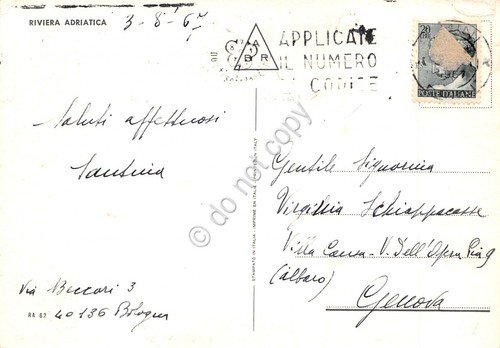 RIVIERA ADRIATICA
3-8-67
APPLICATE
IL NUMERO
CODICE
A
D R
20
POSTE ITALIANE
Saluti affettuosi
Santina
Gentile Signorina
Virginia Schiappacasse
Villa Causa - V. Dell'Opera Pia 9
(Albaro)
Genova
Via Beccari 3
40136 Bologna
RA 62
STAMPATO IN ITALIA - IMPRIME EN ITALIE - PRINTED IN ITALY
do not copy